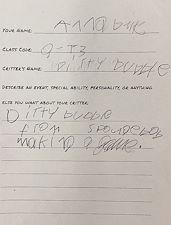 YOUR NAME: Anna
CLASS CODE: Q-T3
CRITTER'S NAME: Dirty bubble
DESCRIBE AN EVENT, SPECIAL ABILITY, PERSONALITY, OR ANYTHING
ELSE YOU WANT ABOUT YOUR CRITTER:
Dirty bubble
from spongebob
making a game.